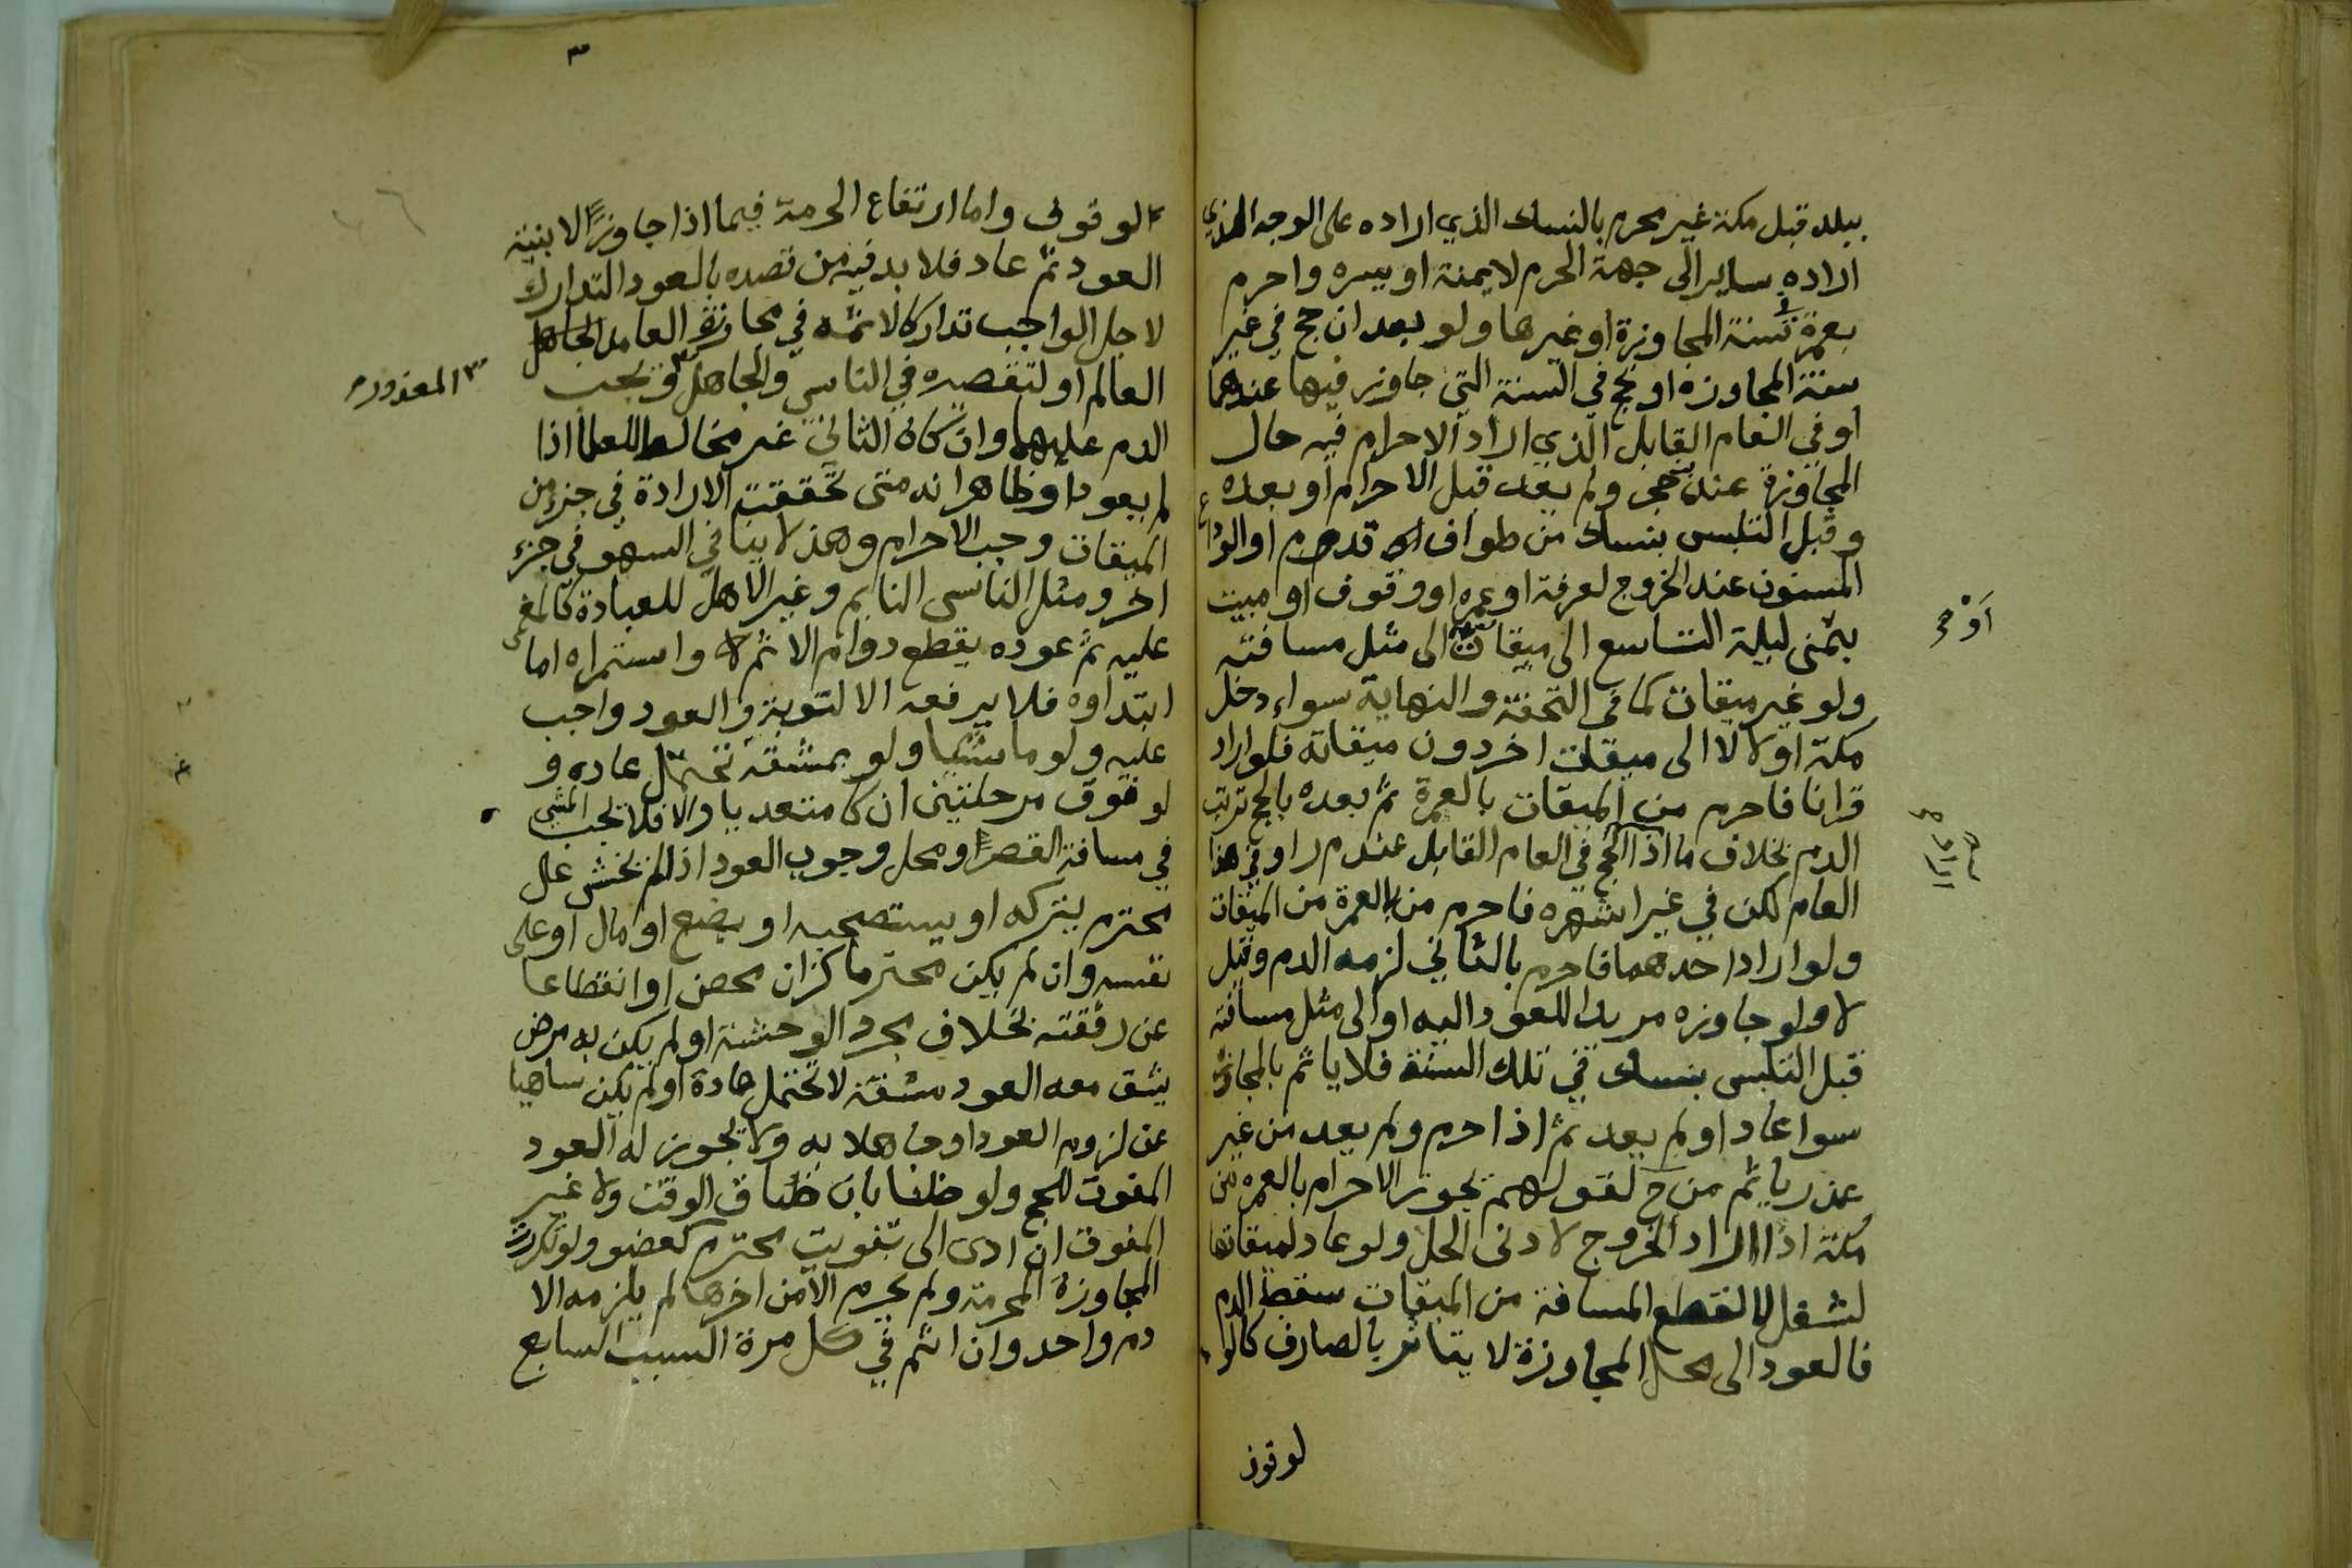 ببلد قبل مكة غير محرم بالنسك الذي اراده على الوجه الذي
اراده ساير الى جهة الحرم لا يمنة او يسره واحرم
بعمرة سنة المجاوزة او غيرها ولو بعد ان حج في غير
سنة المجاوزة او بحج في السنة التي جاوز فيها عندهما
او في العام القابل الذي اراد الاحرام فيه حال
المجاوزة عند حجر ولم يعد قبل الاحرام او بعده
وقبل التلبس بنسك من طواف قدوم او الوداع
المسنون عند الخروج لعرفة او عمره او وقوف او مبيت
بمنى ليلة التاسع الى ميقات الى مثل مسافته
ولو غير ميقات كما في التحفة والنهاية سواء دخل
مكة او لا لا الى ميقات اخر دون ميقاته فلو اراد
قرانا فاحرم من الميقات بالعمرة ثم بعده بالحج ترتب
الدم بخلاف ما اذا الحج في العام القابل عند م ر او في هذا
العام لكن في غير اشهره فاحرم من بالعمرة من الميقات
ولو اراد احدهما فاحرم بالثاني لزمه الدم وقيل
لا ولو جاوزه مريدا للعود اليه او الى مثل مسافته
قبل التلبس بنسك في تلك السنة فلا ياثم بالمجاوزة
سوا عاد او لم يعد ثم اذا احرم ولم يعد من غير
عذر ياثم من ح لقولهم يجوز الاحرام بالعمره من
مكة اذا اراد الخروج لادنى الحل ولو عاد لميقاتها
لشغل لا لقطع المسافة من الميقات سقط الدم
فالعود الى محل المجاوزة لا يتاثر بالصارف كالو
لوقوف
او م ر
الوقوف واما ارتفاع الحرمة فيما اذا جاوز الا بنية
العود ثم عاد فلا بد فيه من قصده بالعود التدارك
لاجل الواجب تداركا لاثمه في مجاوزة العامد
العالم او لتقصيره في الناسي والجاهل ويجب
المعذور
الدم عليهما وان كان الثاني غير مخالط للعلما اذا
لم يعودا وظاهر انه متى تحققت الارادة في جزء من
الميقات وجب الاحرام وهذا لا ينافي السهو في جزء
اخر ومثل الناسي النايم وغير الاهل للعبادة كالمغمى
عليه ثم عوده يقطع دوام الاثم لا واستمراه اما
ابتداوه فلا يرفعه الا التوبة والعود واجب
عليه ولو ماشيا ولو بمشقة تحتمل عاده و
لو فوق مرحلتين ان كا متعديا والا فلا يجب المشي
في مسافة القصر ومحل وجوب العود اذا لم يخش على
محترم يتركه او يستصحبه او بضع او مال او على
نفسه وان لم يكن محترما كزان محصن او انقطاعا
عن رفقته بخلاف مجرد الوحشة او لم يكن به مرض
يشق معه العود مشقة لا تحتمل عادة او لم يكن ساهيا
عن لزوم العود او جاهلا به ولا يجوز له العود
المفوت للحج ولو ظنا بان ضاق الوقت ولا غير
المفوت ان ادى الى تفويت محترم كعضو ولو تكررت
المجاوزة المحرمة ولم يحرم الا من اخرها لم يلزمه الا
دم واحد وان اثم في كل مرة السبب السابع